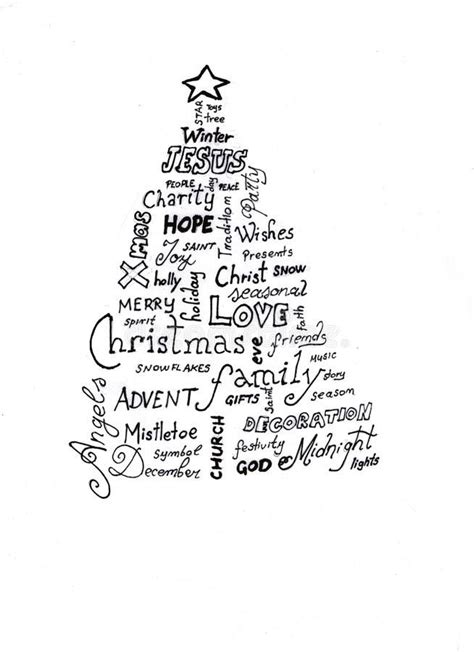 STAR
Toys
tree
Winter
JESUS
PEOPLE
day
PEACE
Party
Charity
Tradition
XMAS
HOPE
Wishes
SAINT
Joy
Presents
holly
holiday
Christ
SNOW
seasonal
MERRY
LOVE
faith
spirit
Christmas
eve
friends
SNOWFLAKES
family
MUSIC
story
Angels
ADVENT
GIFTS
Saint
season
DECORATION
Mistletoe
CHURCH
festivity
Midnight
symbol
December
GOD
lights